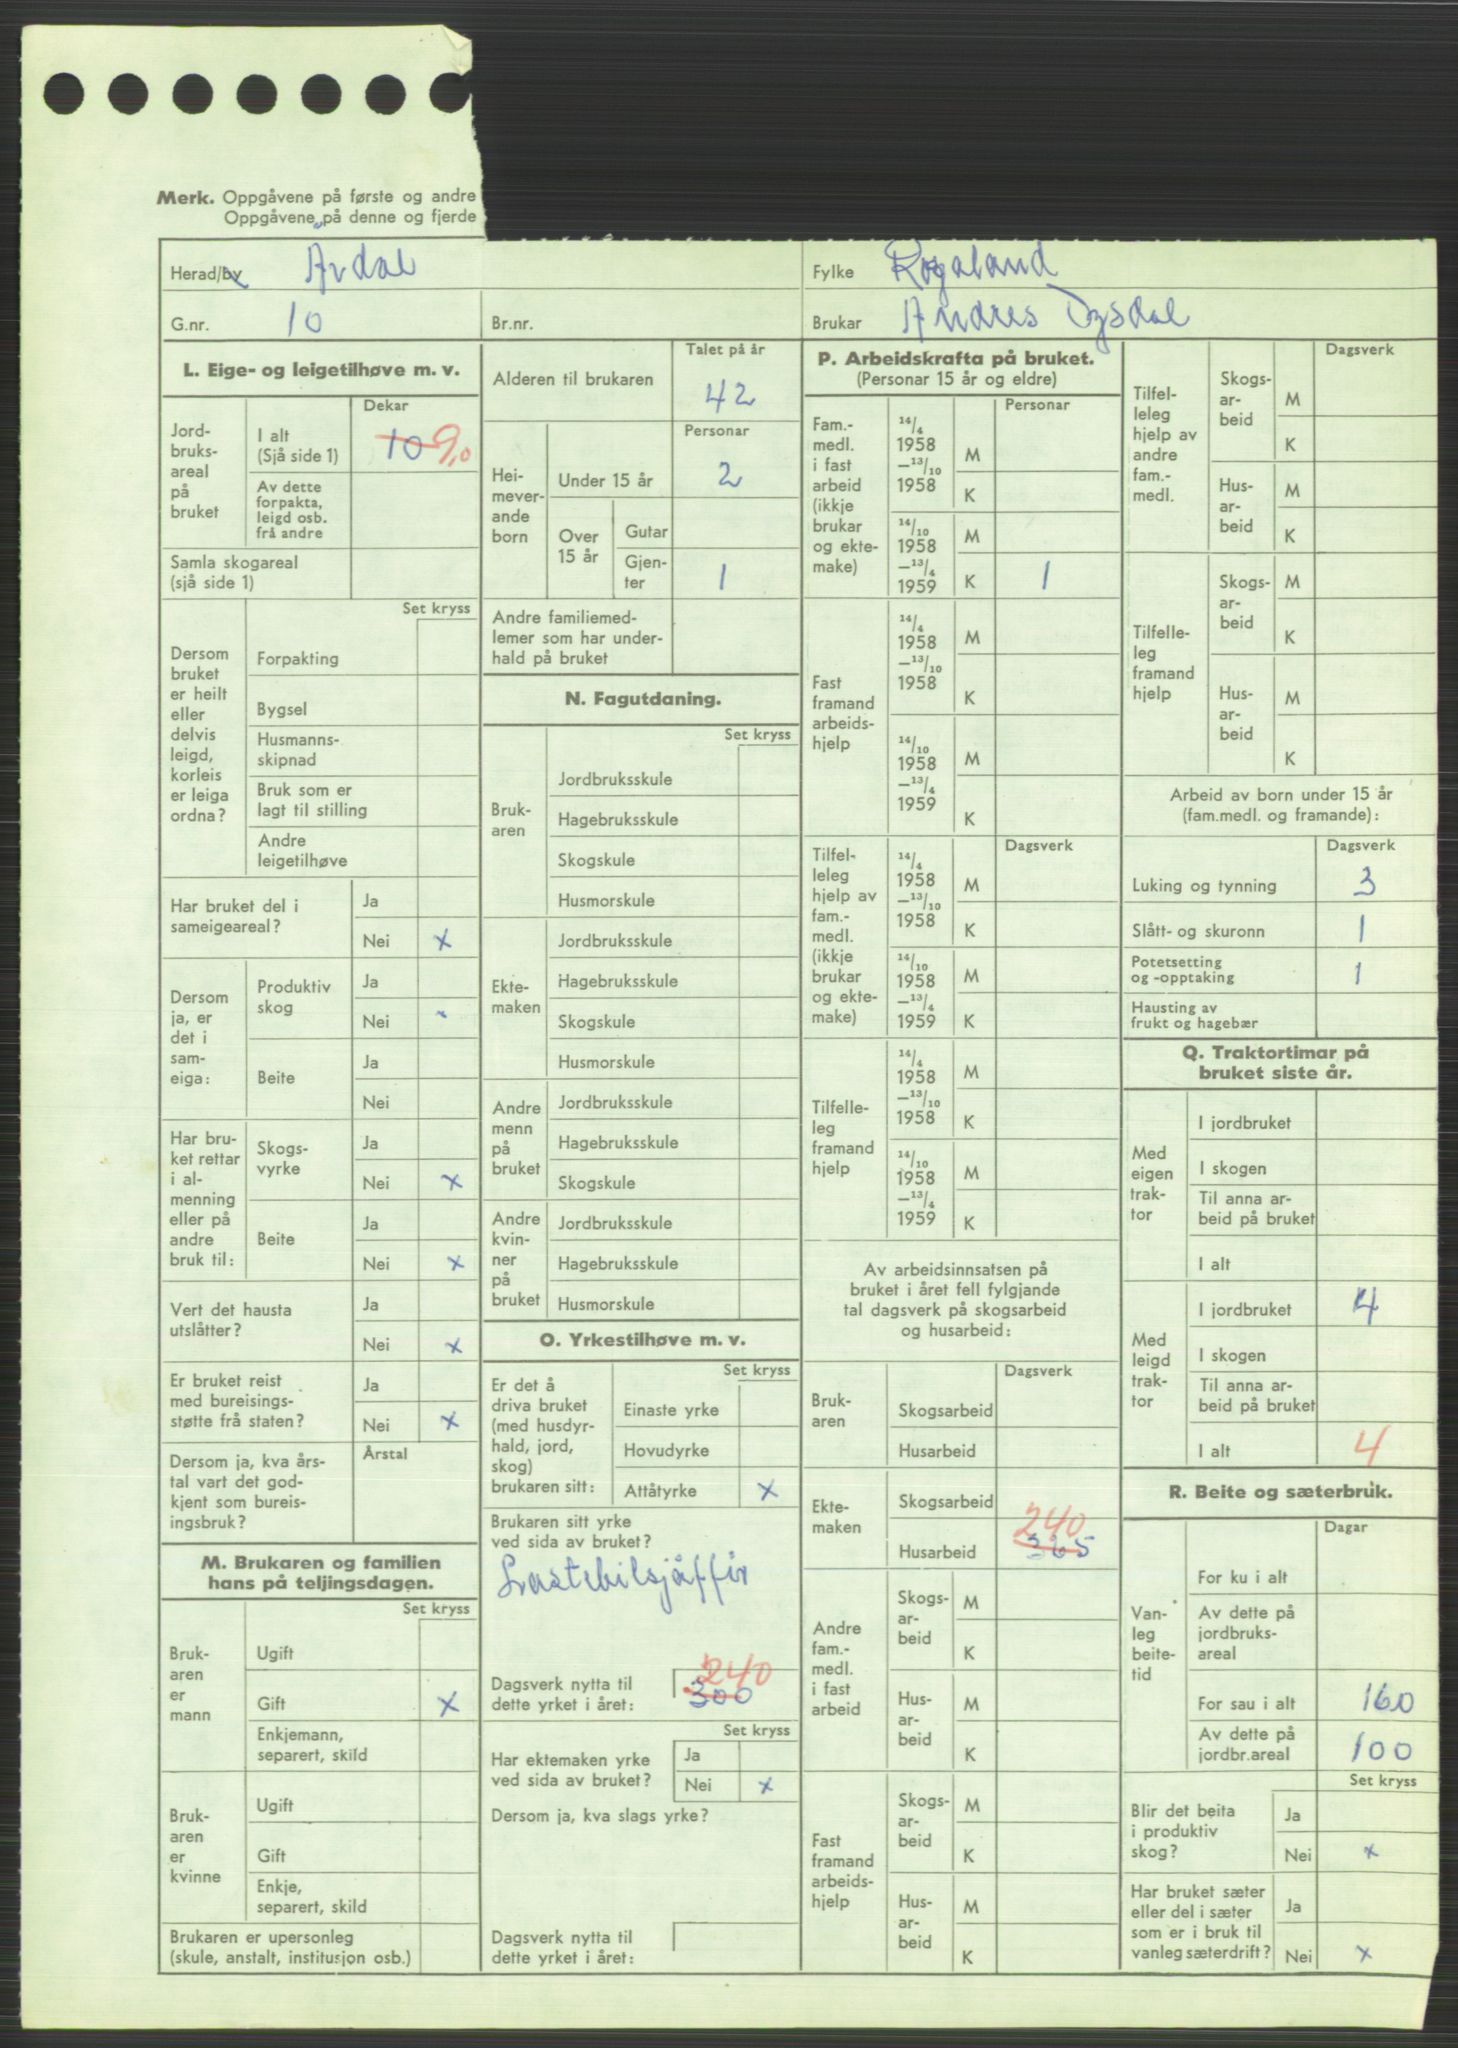 Merk. Oppgåvene på første og andre
Oppgåvene på denne og fjerde
Herad/by Årdal
Fylke Rogaland
G.nr. 10
Br.nr.
Brukar Andres Tysdal
L. Eige- og leigetilhøve m. v.
Dekar
Jord-
bruks-
areal
på
bruket
I alt
(Sjå side 1)
10 9,0
Av dette
forpakta,
leigd osb.
frå andre
Samla skogareal
(sjå side 1)
Set kryss
Dersom
bruket
er heilt
eller
delvis
leigd,
korleis
er leiga
ordna?
Forpakting
Bygsel
Husmanns-
skipnad
Bruk som er
lagt til stilling
Andre
leigetilhøve
Har bruket del i
sameigeareal?
Ja
Nei x
Dersom
ja, er
det i
sam-
eiga:
Produktiv
skog
Ja
Nei
Beite
Ja
Nei
Har bru-
ket rettar
i al-
menning
eller på
andre
bruk til:
Skogs-
vyrke
Ja
Nei x
Beite
Ja
Nei x
Vert det hausta
utslåtter?
Ja
Nei x
Er bruket reist
med bureisings-
støtte frå staten?
Ja
Nei x
Dersom ja, kva års-
tal vart det god-
kjent som bureis-
ingsbruk?
Årstal
M. Brukaren og familien
hans på teljingsdagen.
Set kryss
Bruk-
aren
er
mann
Ugift
Gift x
Enkjemann,
separert, skild
Bruk-
aren
er
kvinne
Ugift
Gift
Enkje,
separert, skild
Brukaren er upersonleg
(skule, anstalt, institusjon osb.)
Talet på år
Alderen til brukaren 42
Personar
Hei-
mever-
ande
born
Under 15 år 2
Over
15 år
Gutar
Gjen-
ter 1
Andre familiemed-
lemer som har under-
hald på bruket
N. Fagutdaning.
Set kryss
Bruk-
aren
Jordbruksskule
Hagebruksskule
Skogskule
Husmorskule
Ekte-
maken
Jordbruksskule
Hagebruksskule
Skogskule
Husmorskule
Andre
menn
på
bruket
Jordbruksskule
Hagebruksskule
Skogskule
Andre
kvin-
ner
på
bruket
Jordbruksskule
Hagebruksskule
Husmorskule
O. Yrkestilhøve m. v.
Set kryss
Er det å
driva bruket
(med husdyr-
hald, jord,
skog)
brukaren sitt:
Einaste yrke
Hovudyrke
Attåtyrke x
Brukaren sitt yrke
ved sida av bruket?
Lastebilsjåffør
Dagsverk nytta til
dette yrket i året:
240
300
Set kryss
Har ektemaken yrke
ved sida av bruket?
Ja
Nei x
Dersom ja, kva slags yrke?
Dagsverk nytta til
dette yrket i året:
P. Arbeidskrafta på bruket.
(Personar 15 år og eldre)
Personar
Fam.-
medl.
i fast
arbeid
(ikkje
brukar
og ekte-
make)
14/4
1958
—13/10
1958
M
K
14/10
1958
—13/4
1959
M
K 1
Fast
framand
arbeids-
hjelp
14/4
1958
—13/10
1958
M
K
14/10
1958
—13/4
1959
M
K
Dagsverk
Tilfel-
leleg
hjelp av
fam.-
medl.
(ikkje
brukar
og ekte-
make)
14/4
1958
—13/10
1958
M
K
14/10
1958
—13/4
1959
M
K
Tilfelle-
leg
framand
hjelp
14/4
1958
—13/10
1958
M
K
14/10
1958
—13/4
1959
M
K
Av arbeidsinnsatsen på
bruket i året fell fylgjande
tal dagsverk på skogsarbeid
og husarbeid:
Dagsverk
Bruk-
aren
Skogsarbeid
Husarbeid
Ekte-
maken
Skogsarbeid
240
Husarbeid 365
Andre
fam.-
medl.
i fast
arbeid
Skogs-
ar-
beid
M
K
Hus-
ar-
beid
M
K
Fast
framand
arbeids-
hjelp
Skogs-
ar-
beid
M
K
Hus-
ar-
beid
M
K
Dagsverk
Tilfel-
leleg
hjelp av
andre
fam.-
medl.
Skogs-
ar-
beid
M
K
Hus-
ar-
beid
M
K
Tilfelle-
leg
framand
hjelp
Skogs-
ar-
beid
M
K
Hus-
ar-
beid
M
K
Arbeid av born under 15 år
(fam.medl. og framande):
Dagsverk
Luking og tynning 3
Slått- og skuronn 1
Potetsetting
og -opptaking 1
Hausting av
frukt og hagebær
Q. Traktortimar på
bruket siste år.
Med
eigen
trak-
tor
I jordbruket
I skogen
Til anna ar-
beid på bruket
I alt
Med
leigd
trak-
tor
I jordbruket 4
I skogen
Til anna ar-
beid på bruket
I alt 4
R. Beite og sæterbruk.
Dagar
Van-
leg
beite-
tid
For ku i alt
Av dette på
jordbruks-
areal
For sau i alt 160
Av dette på
jordbr.areal 100
Set kryss
Blir det beita
i produktiv
skog?
Ja
Nei x
Har bruket sæter
eller del i sæter
som er i bruk til
vanleg sæterdrift?
Ja
Nei x